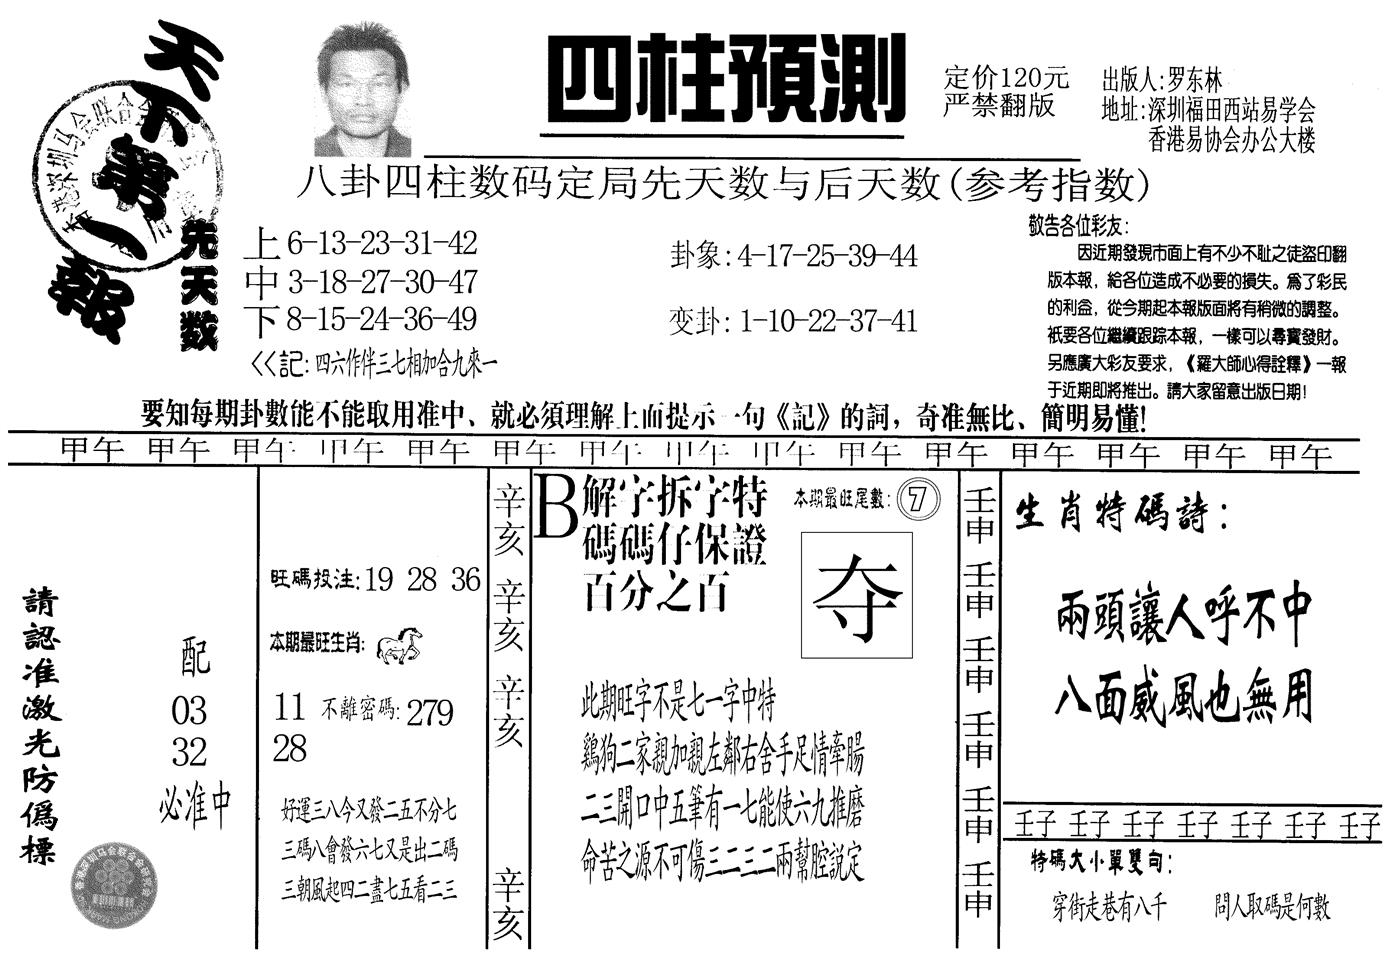 天下第一報
四柱預測
定价120元
严禁翻版
出版人:罗东林
地址:深圳福田西站易学会
香港易协会办公大楼
八卦四柱数码定局先天数与后天数(参考指数)
先天数
上 6-13-23-31-42
中 3-18-27-30-47
下 8-15-24-36-49
<<記: 四六作伴三七相加合九來一
卦象: 4-17-25-39-44
变卦: 1-10-22-37-41
敬告各位彩友:
因近期發現市面上有不少不耻之徒盜印翻
版本報，給各位造成不必要的損失。爲了彩民
的利益，從今期起本報版面將有稍微的調整。
衹要各位繼續跟踪本報，一樣可以尋寶發財。
另應廣大彩友要求，《羅大師心得詮釋》一報
于近期即將推出。請大家留意出版日期!
要知每期卦數能不能取用准中、就必須理解上面提示一句《記》的詞，奇准無比、簡明易懂!
甲午 甲午 甲午 甲午 甲午 甲午 甲午 甲午 甲午 甲午 甲午 甲午 甲午 甲午 甲午
請認准激光防僞標
配
03
32
必准中
旺碼投注: 19 28 36
本期最旺生肖:
11 不離密碼: 279
28
好運三八今又發二五不分七
三碼八會發六七又是出二碼
三朝風起四二盡七五看二三
辛亥 辛亥 辛亥 辛亥
B 解字拆字特
碼碼仔保證
百分之百
本期最旺尾數: 7
夺
此期旺字不是七一字中特
鷄狗二家親加親左鄰右舍手足情牽腸
二三開口中五筆有一七能使六九推磨
命苦之源不可傷三二三二兩幫腔説定
壬申 壬申 壬申 壬申 壬申 壬申
生肖特碼詩:
兩頭讓人呼不中
八面威風也無用
壬子 壬子 壬子 壬子 壬子 壬子 壬子
特碼大小單雙句:
穿街走巷有八千 問人取碼是何數